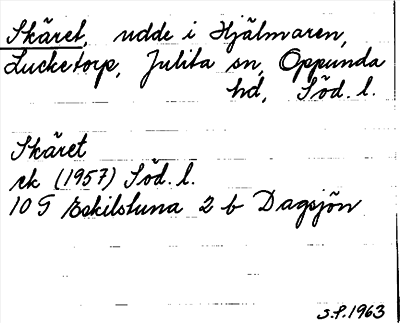 Skäret, udde i Hjälmaren,
Lucketorp, Julita sn, Oppunda
hd, Söd. l.
Skäret
ek (1957) Söd. l.
10 G Eskilstuna 2 b Dagsjön
S.P. 1963